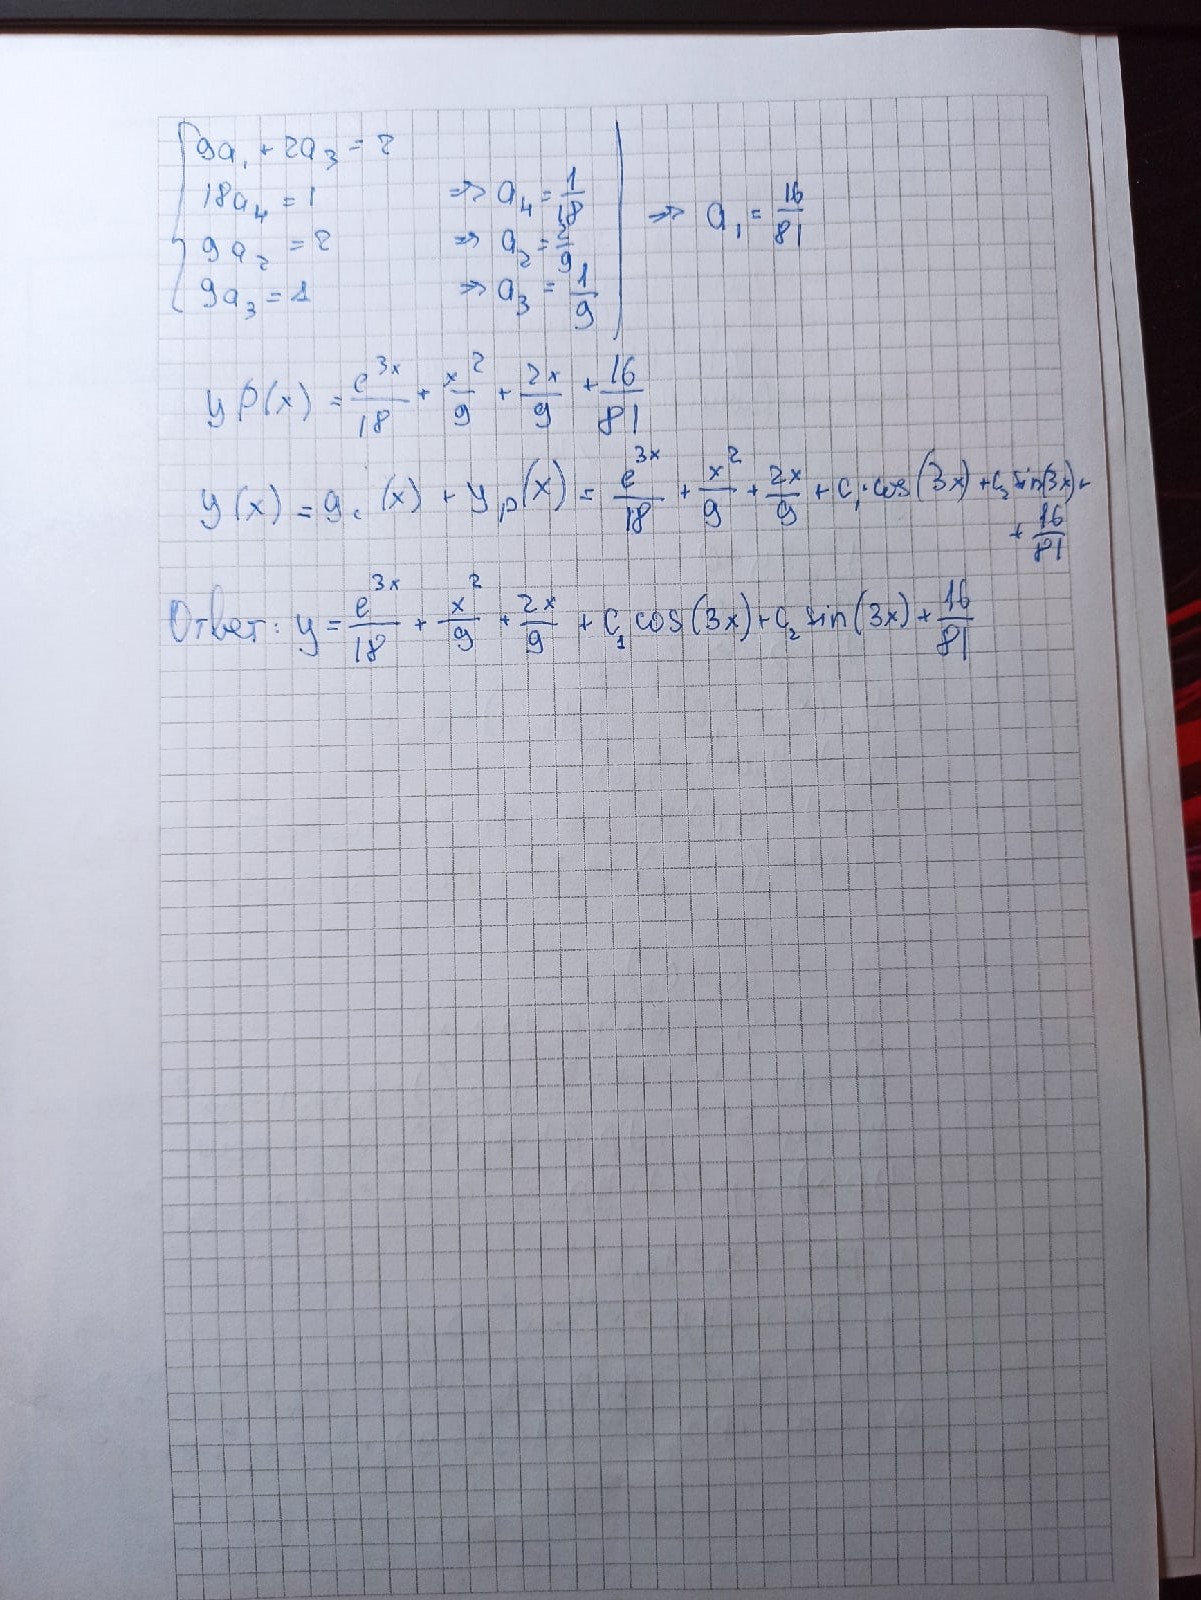 9a₁ + 2a₃ = 2
18a₄ = 1 => a₄ = 1/18
9a₂ = 2 => a₂ = 2/9
9a₃ = 1 => a₃ = 1/9
=> a₁ = 16/81
yp(x) = e^(3x)/18 + x²/9 + 2x/9 + 16/81
y(x) = y_c(x) + y_p(x) = e^(3x)/18 + x²/9 + 2x/9 + c₁·cos(3x) + c₂ sin(3x) +
+ 16/81
Ответ: y = e^(3x)/18 + x²/9 + 2x/9 + c₁ cos(3x) + c₂ sin(3x) + 16/81